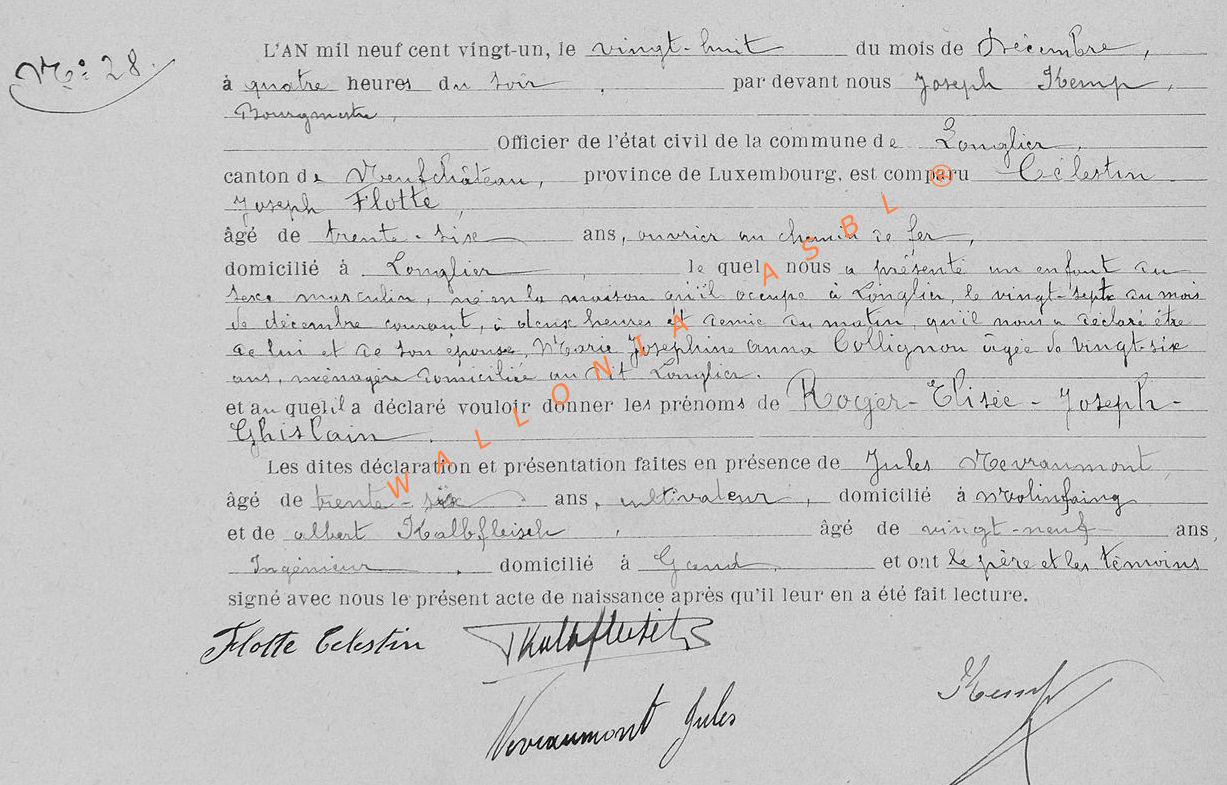 N° 28.
L'AN mil neuf cent vingt-un, le vingt-huit du mois de Décembre,
à quatre heures du soir, par devant nous Joseph Kemp,
Bourgmestre,
Officier de l'état civil de la commune de Longlier,
canton de Neufchâteau, province de Luxembourg, est comparu Célestin
Joseph Flotte,
âgé de trente-six ans, ouvrier au chemin de fer,
domicilié à Longlier, lequel nous a présenté un enfant du
sexe masculin, né en la maison qu'il occupe à Longlier, le vingt-sept du mois
de décembre courant, à deux heures et demie du matin, qu'il nous a déclaré être
de lui et de son épouse, Marie Joséphine Anna Collignon âgée de vingt-six
ans, ménagère domiciliée au dit Longlier.
et auquel il a déclaré vouloir donner les prénoms de Roger-Elisée-Joseph-
Ghislain.
Les dites déclaration et présentation faites en présence de Jules Nevraumont,
âgé de trente-six ans, cultivateur, domicilié à Molinfaing
et de albert Kalbfleisch, âgé de vingt-neuf ans,
Ingénieur, domicilié à Gand, et ont le père et les témoins
signé avec nous le présent acte de naissance après qu'il leur en a été fait lecture.
Flotte Celestin Kalbfleisch
Nevraumont Jules Kemp
WALLONIA ASBL ®